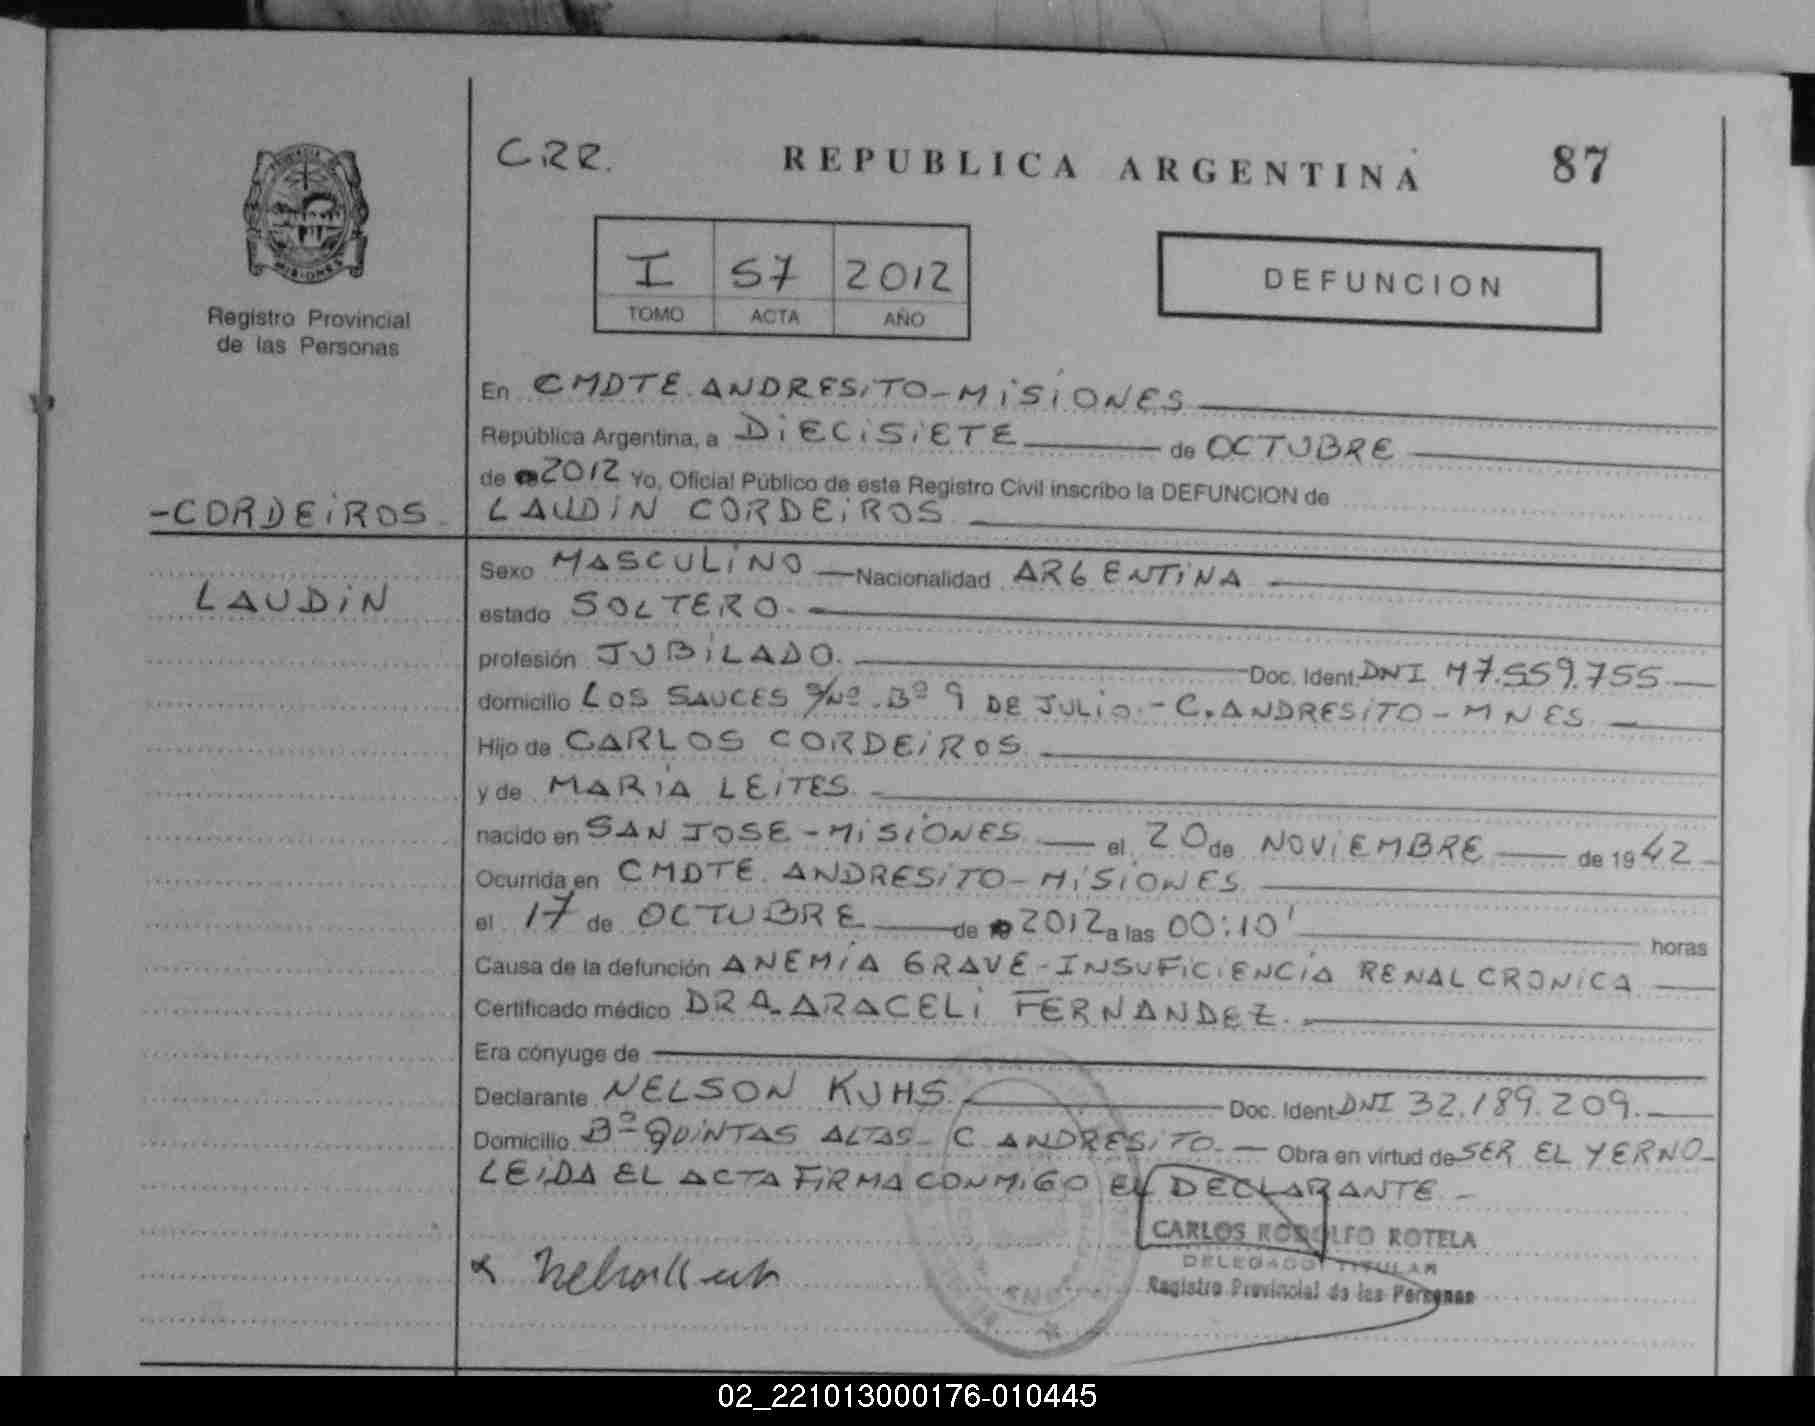 C.R.R.
REPUBLICA ARGENTINA
87
MISIONES
Registro Provincial
de las Personas
I 57 2012
TOMO ACTA AÑO
DEFUNCION
En CMDTE. ANDRESITO-MISIONES
República Argentina, a DIECISIETE de OCTUBRE
de 2012 Yo, Oficial Público de este Registro Civil inscribo la DEFUNCION de
-CORDEIROS
LAUDIN CORDEIROS
LAUDIN
Sexo MASCULINO Nacionalidad ARGENTINA
estado SOLTERO.
profesión JUBILADO. Doc. Ident. DNI M7.559.755
domicilio LOS SAUCES S/Nº. Bº 9 DE JULIO.- C. ANDRESITO-MNES.
Hijo de CARLOS CORDEIROS
y de MARIA LEITES.
nacido en SAN JOSE-MISIONES el 20 de NOVIEMBRE de 1942
Ocurrida en CMDTE. ANDRESITO-MISIONES.
el 17 de OCTUBRE de 2012 a las 00:10' horas
Causa de la defunción ANEMIA GRAVE-INSUFICIENCIA RENAL CRONICA
Certificado médico DRA. ARACELI FERNANDEZ.
Era cónyuge de
Declarante NELSON KUHS. Doc. Ident. DNI 32.189.209.
Domicilio Bº QUINTAS ALTAS- C. ANDRESITO.- Obra en virtud de SER EL YERNO-
LEIDA EL ACTA FIRMA CONMIGO EL DECLARANTE.-
CARLOS RODOLFO ROTELA
DELEGADO TITULAR
Registro Provincial de las Personas
02_221013000176-010445